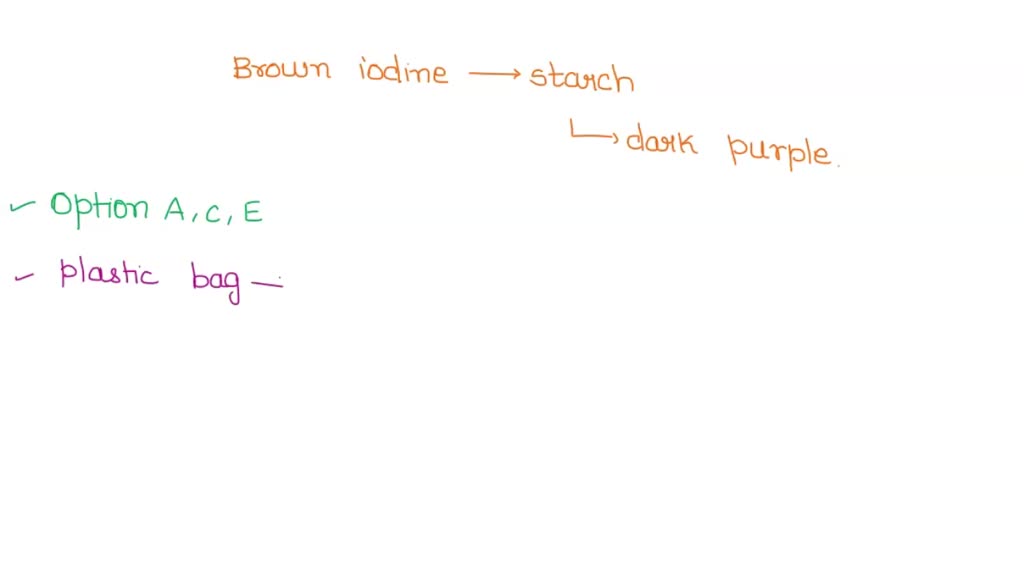 Brown iodine → starch
↳ dark purple.
✓ Option A, C, E
✓ plastic bag —